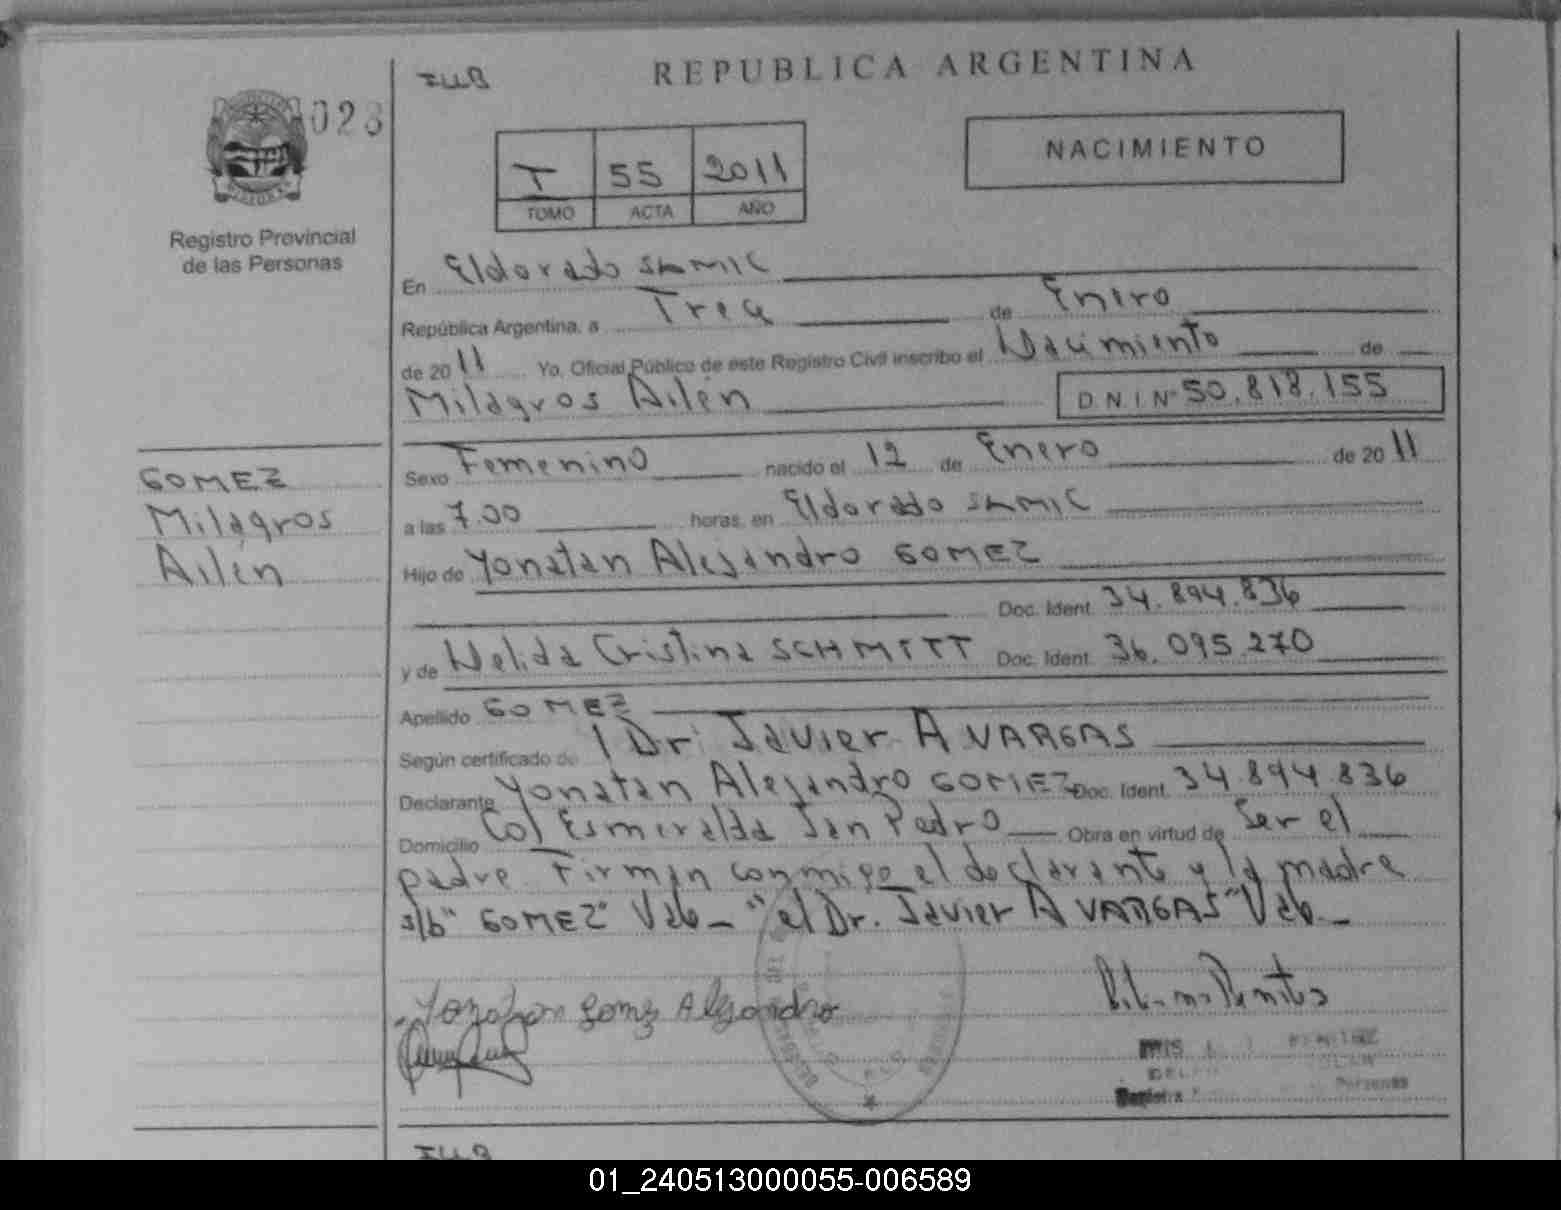 REPUBLICA ARGENTINA
028
Registro Provincial
de las Personas
T 55 2011
TOMO ACTA AÑO
NACIMIENTO
En Eldorado SAMIC
República Argentina, a Trece de Enero
de 2011 Yo, Oficial Público de este Registro Civil inscribo el Nacimiento de
Milagros Ailén D.N.I Nº 50.818.155
GOMEZ
Milagros
Ailén
Sexo Femenino nacido el 12 de Enero de 2011
a las 7.00 horas, en Eldorado SAMIC
Hijo de Yonatan Alejandro GOMEZ
Doc. Ident. 34.894.836
y de Nelida Cristina SCHMITT Doc. Ident. 36.095.270
Apellido GOMEZ
Según certificado de Dr. Javier A VARGAS
Declarante Yonatan Alejandro GOMEZ Doc. Ident. 34.894.836
Domicilio Col Esmeralda San Pedro Obra en virtud de Ser el
padre Firman conmigo el declarante y la madre
s/b "GOMEZ" Vale "el Dr. Javier A VARGAS" Vale
Alejandro
01_240513000055-006589